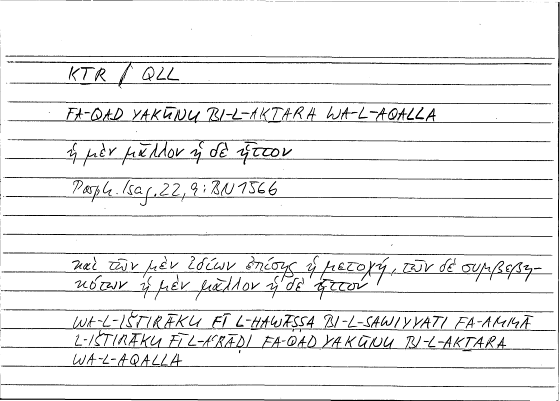 KṮR / QLL
FA-QAD YAKŪNU BI-L-AKṮARA WA-L-AQALLA
ἡ μὲν μᾶλλον ἡ δὲ ἧττον
Porph. Isag. 22, 9 : BN 1566
καὶ τῶν μὲν ἰδίων ἐπίσης ἡ μετοχή, τῶν δὲ συμβεβη-
κότων ἡ μὲν μᾶλλον ἡ δὲ ἧττον
WA-L-IŠTIRĀKU FĪ L-ḪAWĀṢṢA BI-L-SAWIYYATI FA-AMMĀ
L-IŠTIRĀKU FĪ L-AʿRĀḌI FA-QAD YAKŪNU BI-L-AKṮARA
WA-L-AQALLA